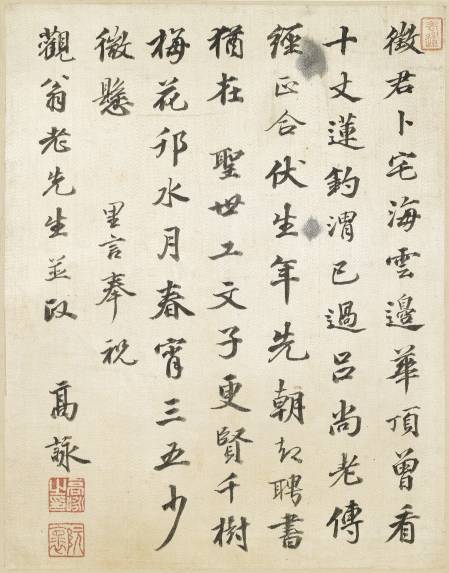 徵君卜宅海雲邊華頂曾看
十丈蓮釣渭已過呂尚老傳
經正合伏生年先朝却聘書
猶在 聖世工文子更賢千樹
梅花邗水月春宵三五少
微懸 里言奉祝
觀翁老先生並政 高詠
高詠之印
阮懷